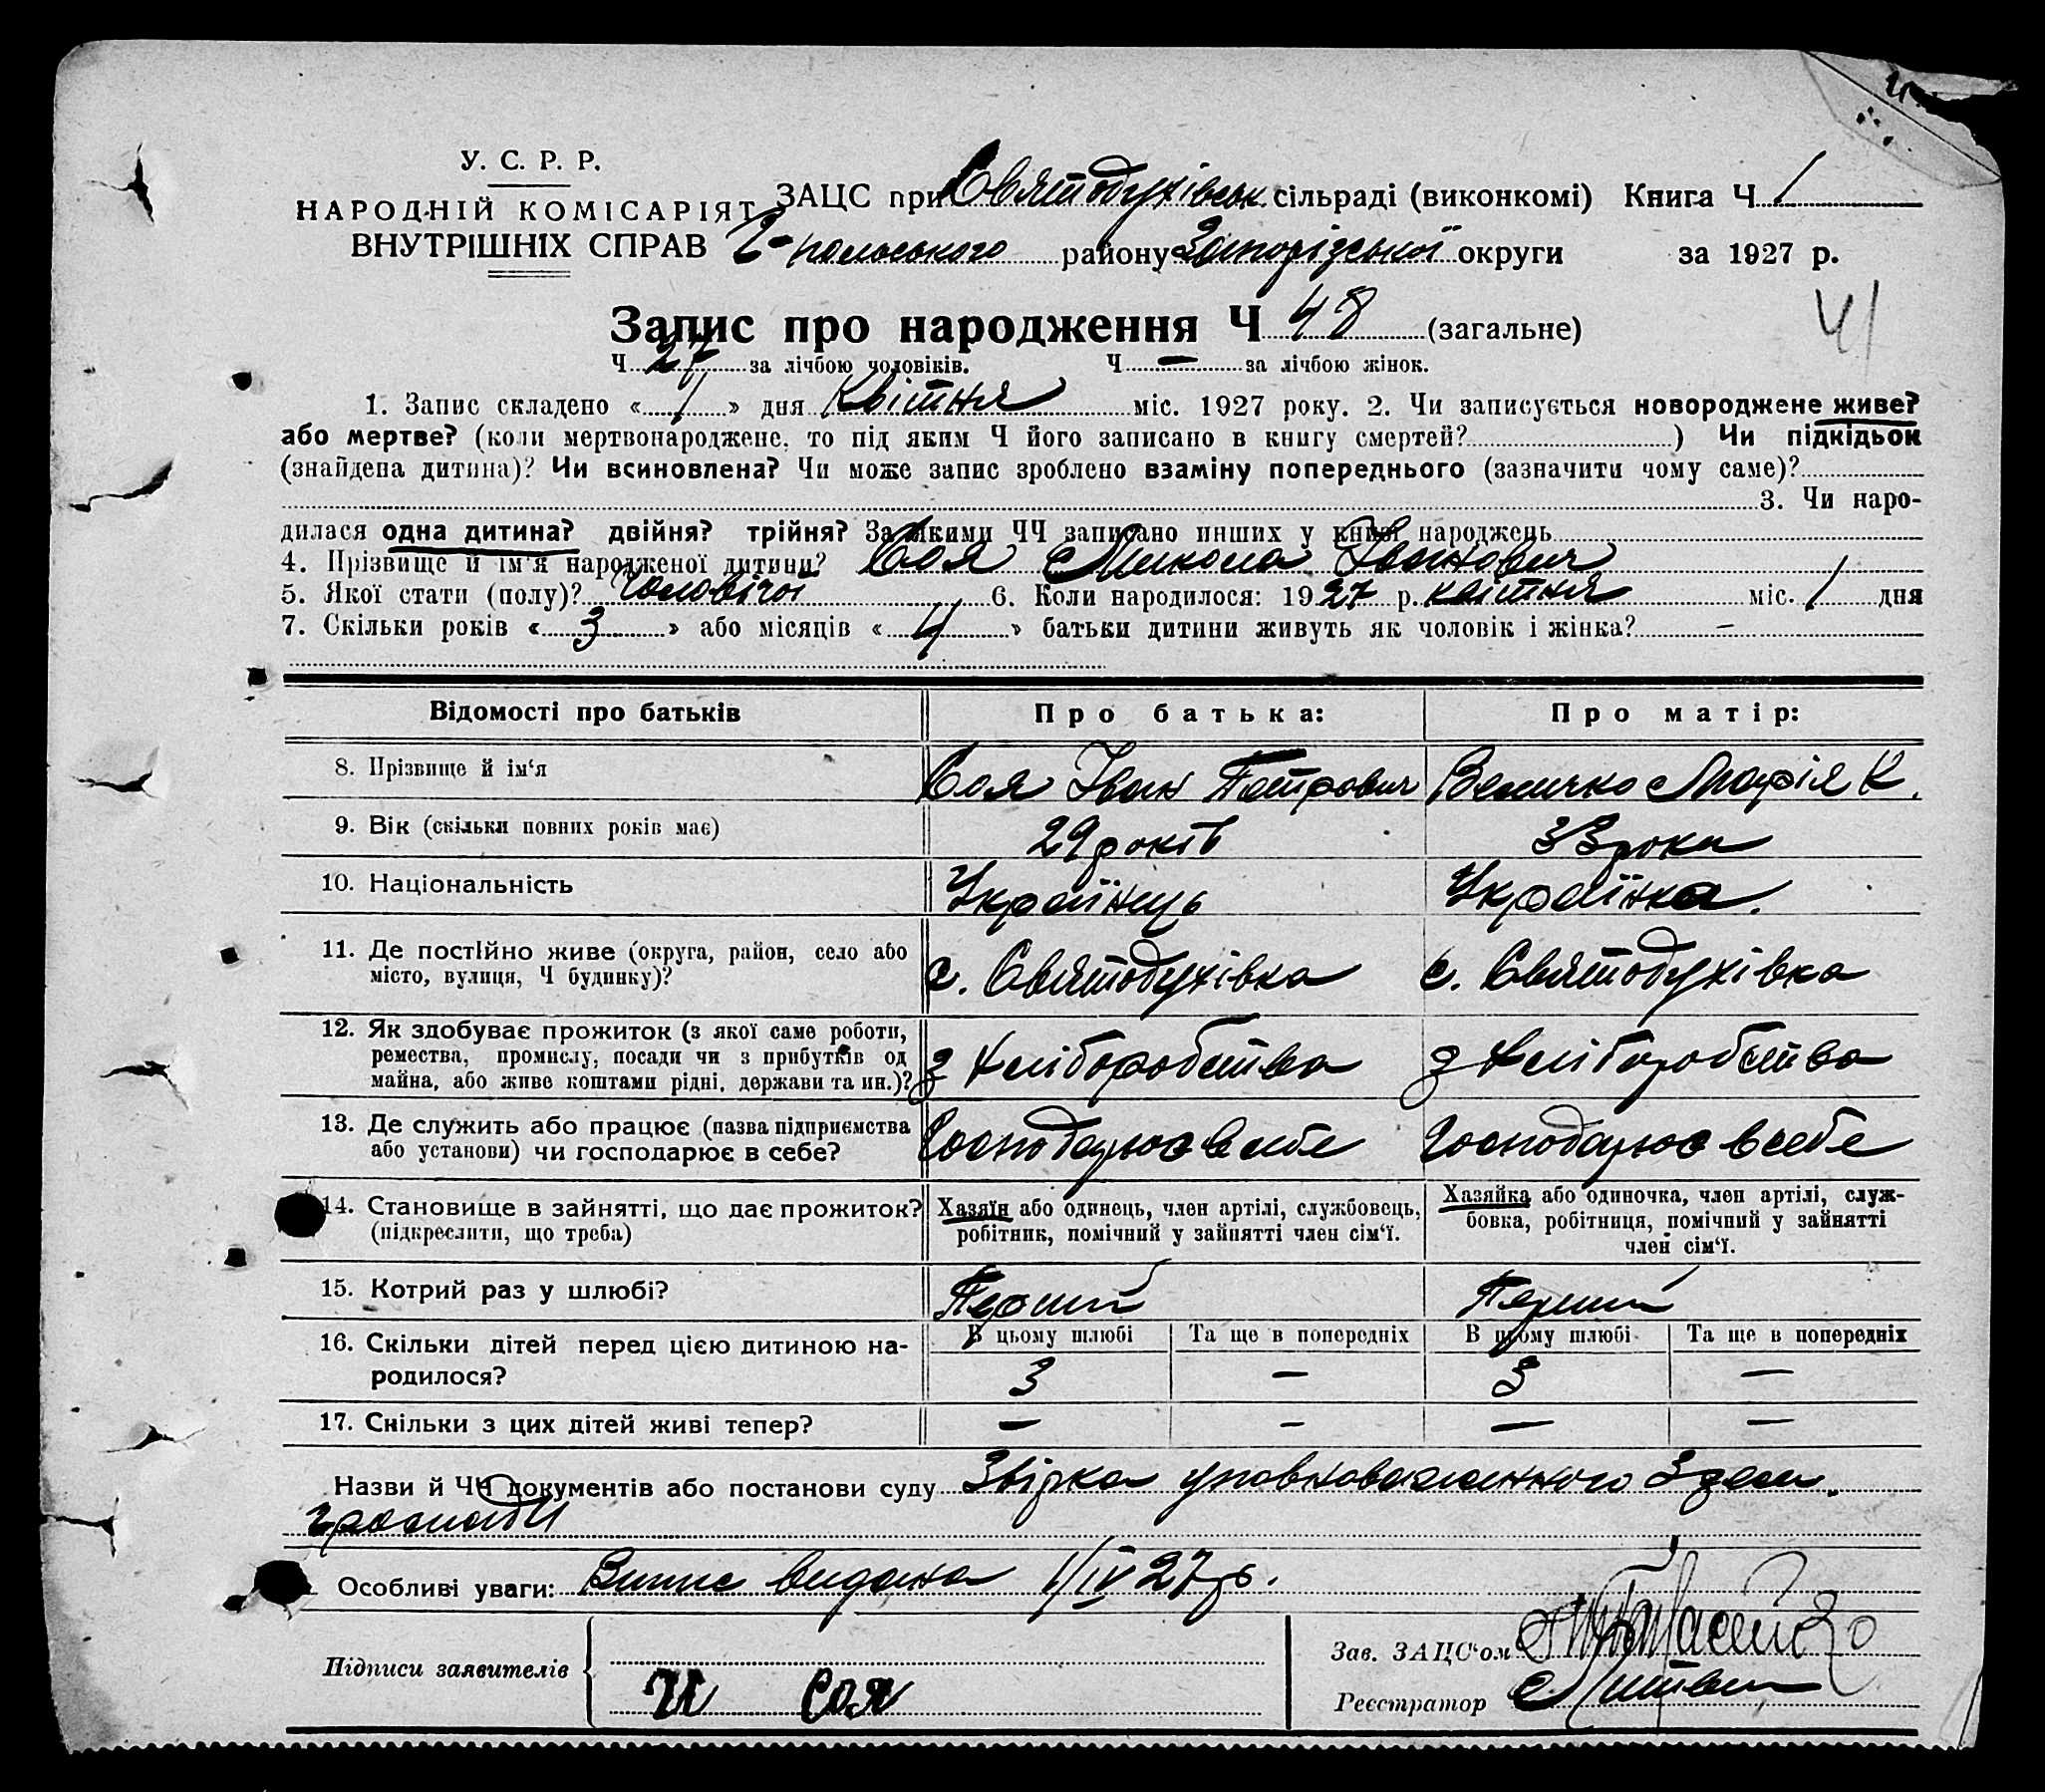 У. С. Р. Р.
НАРОДНІЙ КОМІСАРІЯТ
ВНУТРІШНІХ СПРАВ
ЗАЦС при Святодухівськ. сільраді (виконкомі) Книга Ч 1
Г-польського району Запорізської округи за 1927 р.
Запис про народження Ч 48 (загальне)
41
Ч 27 за лічбою чоловіків. Ч — за лічбою жінок.
1. Запис складено «1» дня Квітня міс. 1927 року. 2. Чи записується новороджене живе?
або мертве? (коли мертвонароджене, то під яким Ч його записано в книгу смертей? ) Чи підкідьок
(знайдена дитина)? Чи всиновлена? Чи може запис зроблено взаміну попереднього (зазначити чому саме)?
3. Чи наро-
дилася одна дитина? двійня? трійня? За якими ЧЧ записано инших у книзі народжень
4. Прізвище й ім'я народженої дитини? Соя Микола Іванович
5. Якої стати (полу)? Чоловічої 6. Коли народилося: 1927 р. квітня міс. 1 дня
7. Скільки років «3» або місяців «4» батьки дитини живуть як чоловік і жінка? —
Відомості про батьків Про батька: Про матір:
8. Прізвище й ім'я Соя Іван Петрович Величко Марія К.
9. Вік (скільки повних років має) 29 років 33 роки
10. Національність Українець Українка.
11. Де постійно живе (округа, район, село або
місто, вулиця, Ч будинку)? с. Святодухівка с. Святодухівка
12. Як здобуває прожиток (з якої саме роботи,
ремества, промислу, посади чи з прибутків од
майна, або живе коштами рідні, держави та ин.)? з хліборобства з хліборобства
13. Де служить або працює (назва підприємства
або установи) чи господарює в себе? Господарює в себе Господарює в себе
14. Становище в зайнятті, що дає прожиток?
(підкреслити, що треба)
Хазяїн або одинець, член артілі, службовець,
робітник, помічний у зайнятті член сім'ї.
Хазяйка або одиночка, член артілі, служ-
бовка, робітниця, помічний у зайнятті
член сім'ї.
15. Котрий раз у шлюбі? Перший Перший
16. Скільки дітей перед цією дитиною на-
родилося?
В цьому шлюбі Та ще в попередніх В цьому шлюбі Та ще в попередніх
3 — 3 —
17. Скільки з цих дітей живі тепер? — — — —
Назви й ЧЧ документів або постанови суду Звірка уповноваженного З зем.
громади
Особливі уваги: Випис видана 1/IV 27 р.
Підписи заявителів И Соя
Зав. ЗАЦС'ом
Реєстратор Литвин